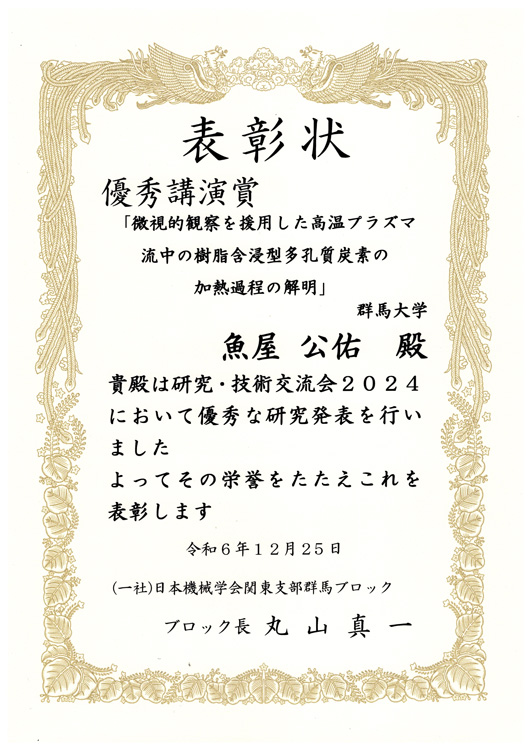 表彰状
優秀講演賞
「微視的観察を援用した高温プラズマ
流中の樹脂含浸型多孔質炭素の
加熱過程の解明」
群馬大学
魚屋 公佑 殿
貴殿は研究・技術交流会2024
において優秀な研究発表を行い
ました
よってその栄誉をたたえこれを
表彰します
令和6年12月25日
(一社)日本機械学会関東支部群馬ブロック
ブロック長 丸山真一